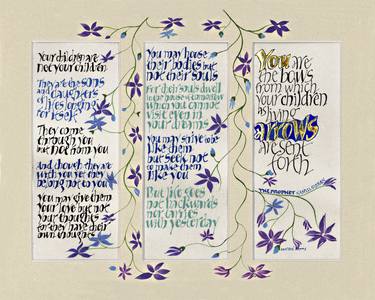 Your children are
not your children
They are the sons
and daughters
of life's longing for
itself
They come
through you
but not from you
And though they are
with you yet they
belong not to you
You may give them
your love but not
your thoughts
for they have their
own thoughts
You may house
their bodies but
not their souls
For their souls dwell
in the house of tomorrow
which you cannot
visit even in
your dreams
You may strive to be
like them
but seek not
to make them
like you
For life goes
not backwards
nor tarries
with yesterday
You are
the bows
from which
your children
as living
arrows
are sent
forth
THE PROPHET